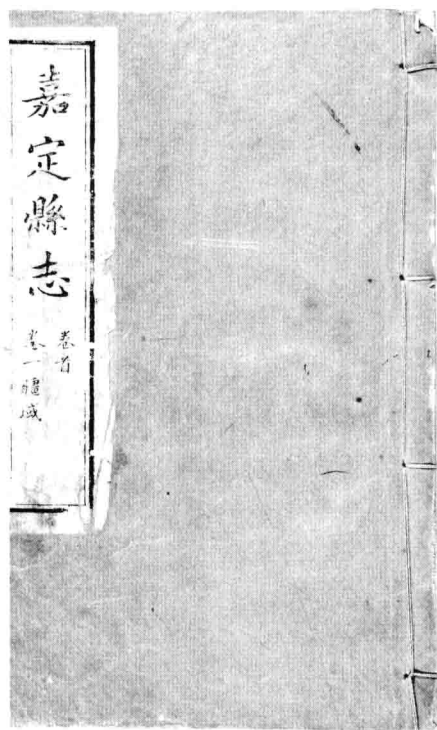 嘉定縣志
卷首
卷一疆域